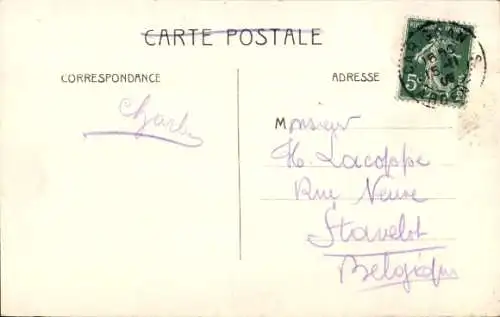 CARTE POSTALE
CORRESPONDANCE
ADRESSE
Charles
Monsieur
H. Lacoppe
Rue Neuve
Stavelot
Belgique
5c